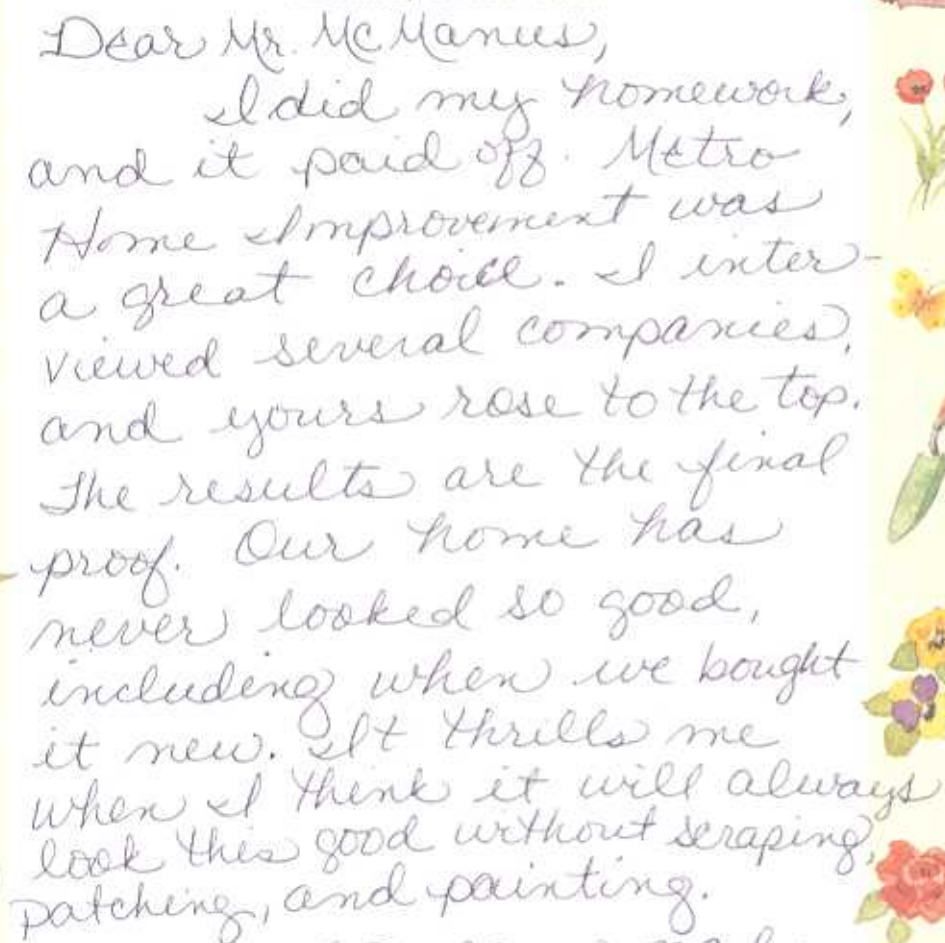 Dear Mr. McManus,
I did my homework,
and it paid off. Metro
Home Improvement was
a great choice. I inter-
viewed several companies,
and yours rose to the top.
The results are the final
proof. Our home has
never looked so good,
including when we bought
it new. It thrills me
when I think it will always
look this good without scraping,
patching, and painting.